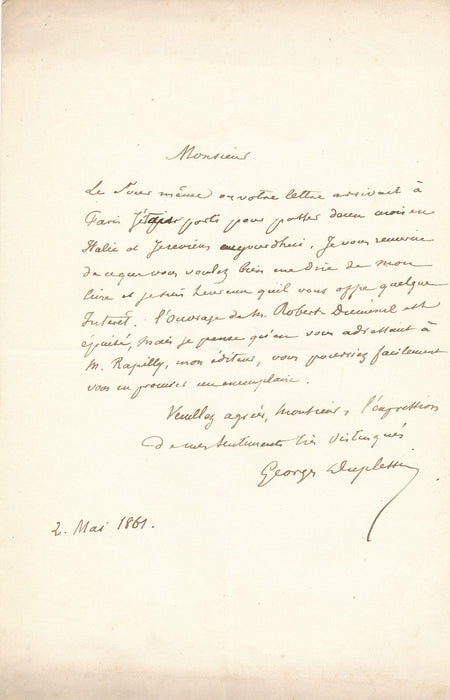 Monsieur
Le jour même où votre lettre arrivait à
Paris je partis pour passer deux mois en
Italie et je reviens aujourd'hui. Je vous remercie
de ce que vous voulez bien me dire de mon
livre et je suis heureux qu'il vous offre quelque
Interêt. L'ouvrage de M. Robert Dumesnil est
épuisé, mais je pense qu'en vous adressant à
M. Rapilly, mon éditeur, vous pourriez facilement
vous en procurer un exemplaire.
Veuillez agréer, Monsieur, l'expression
de mes sentiments très distingués
Georges Duplessis
2. Mai 1861.